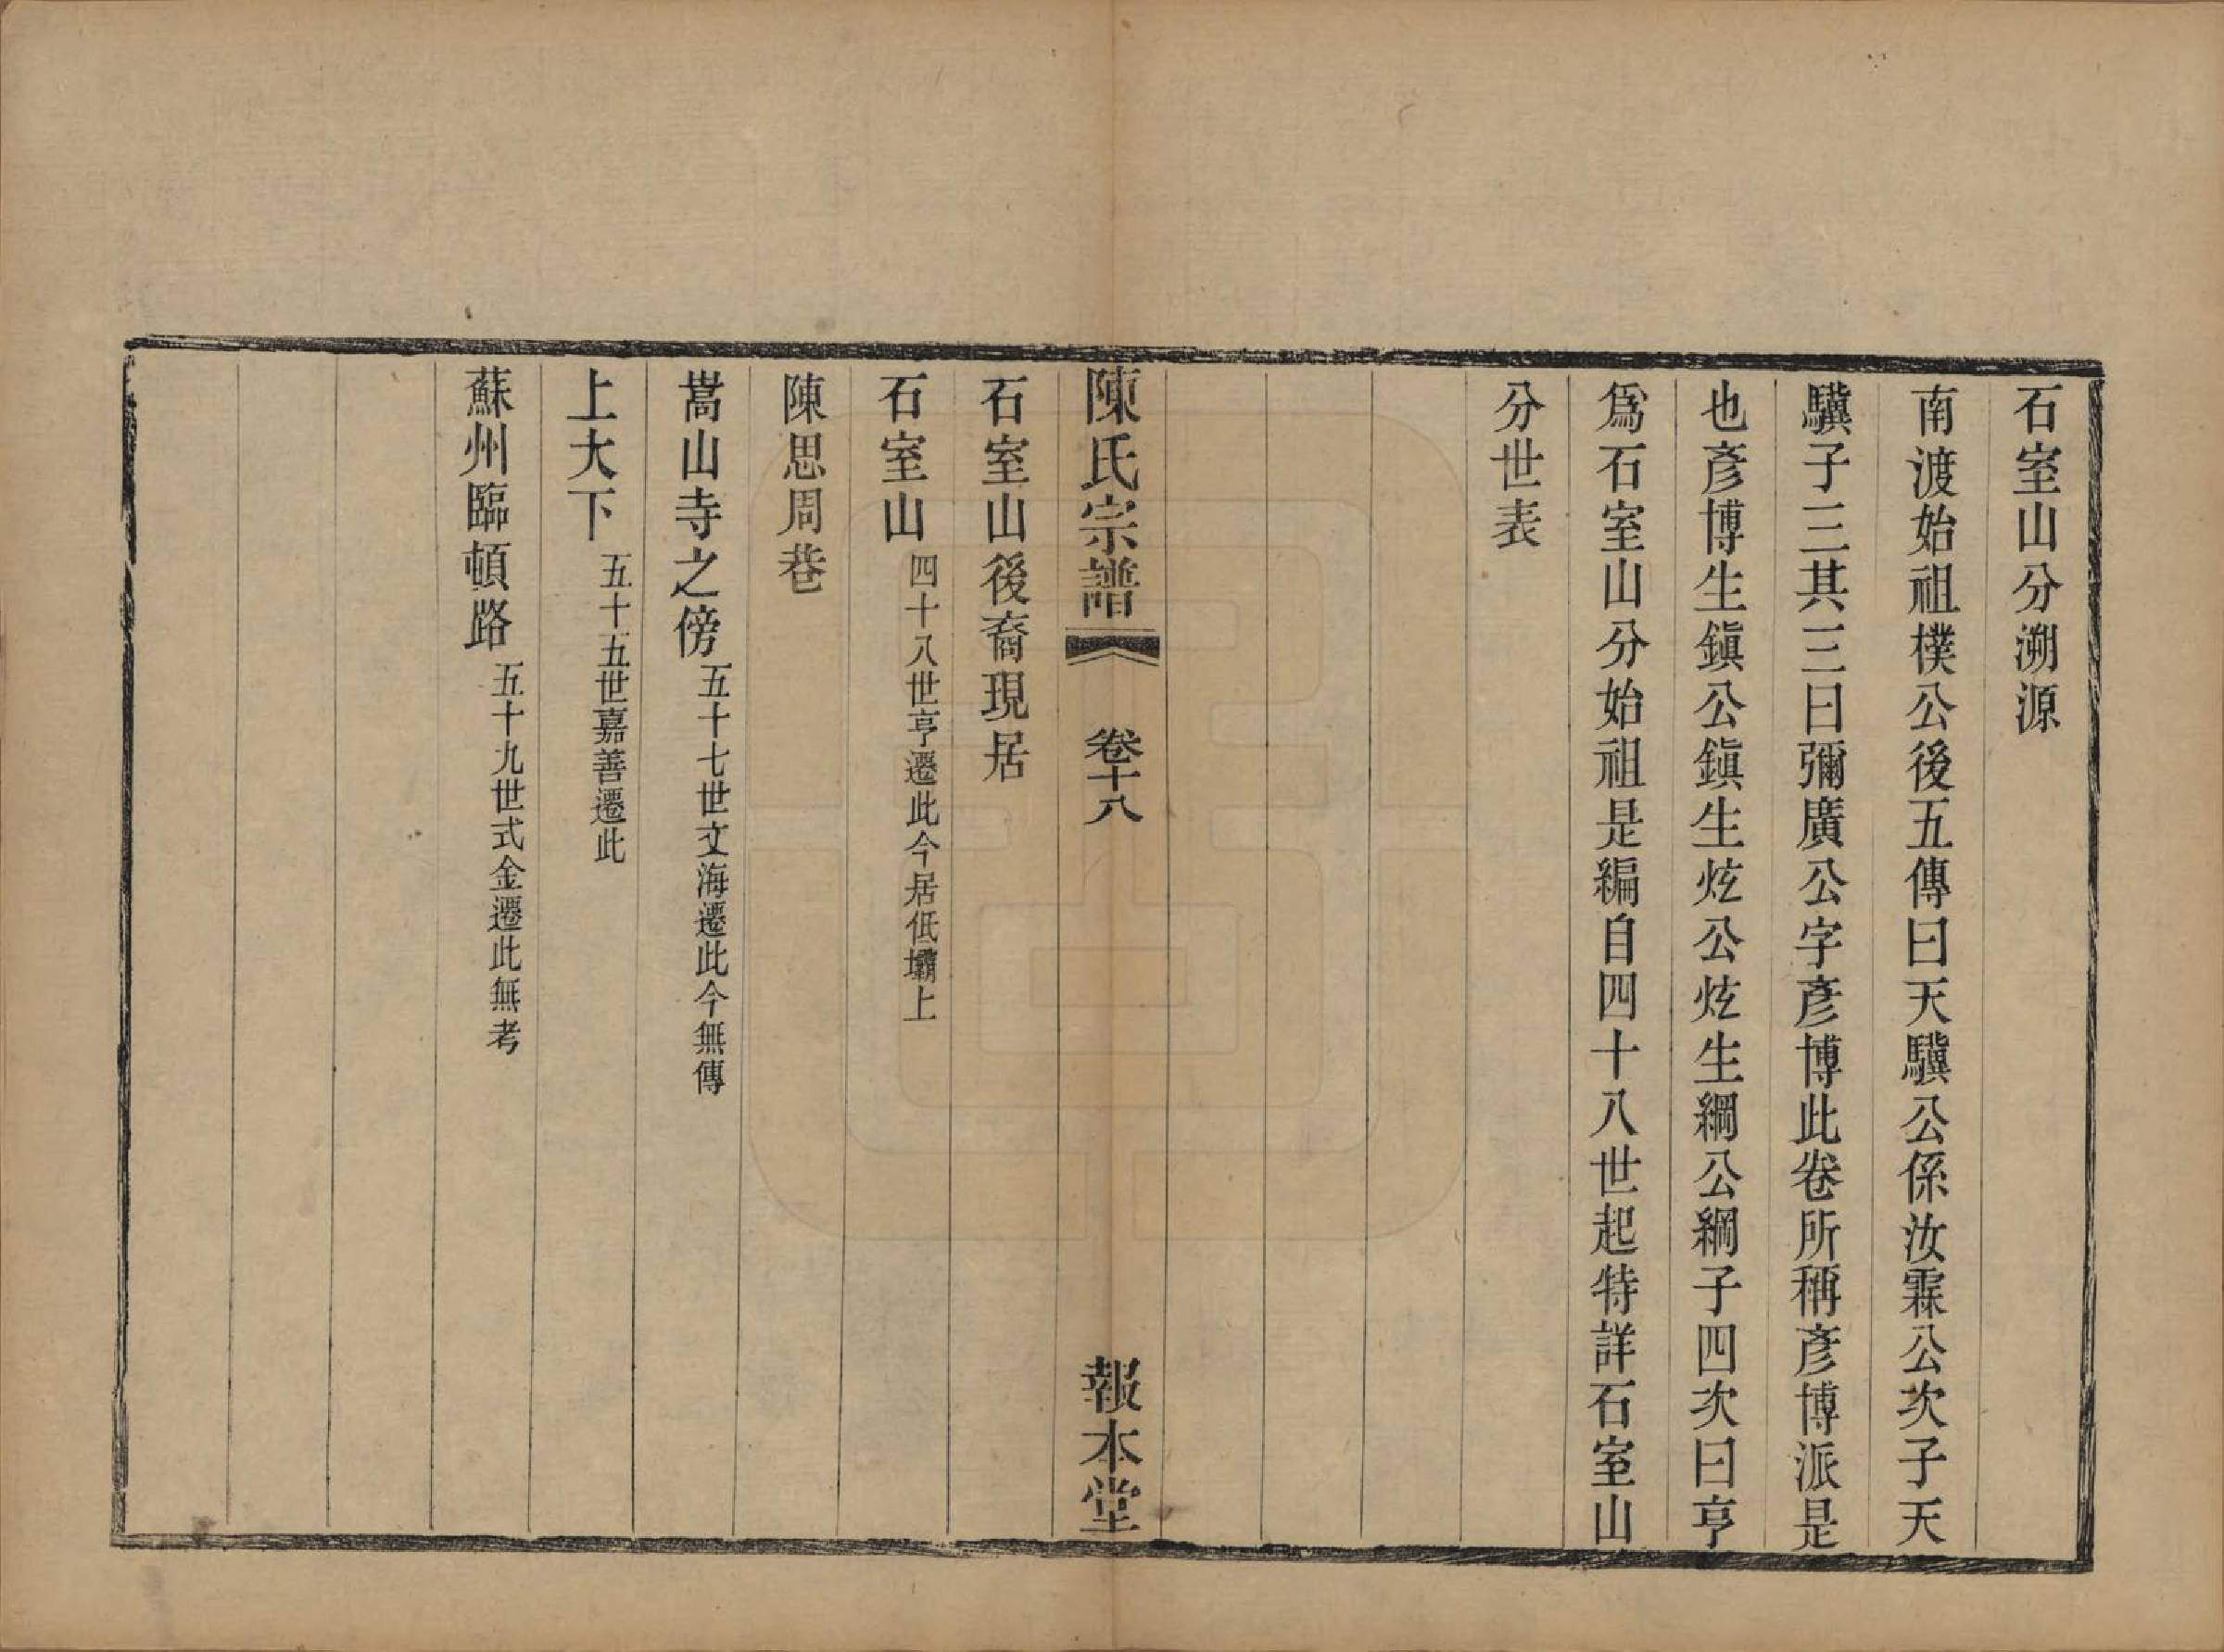 石室山分溯源
南渡始祖樸公後五傳曰天驥公係汝霖公次子天
驥子三其三曰彌廣公字彥博此卷所稱彥博派是
也彥博生鎭公鎭生炫公炫生綱公綱子四次曰亨
爲石室山分始祖是編自四十八世起特詳石室山
分世表
陳氏宗譜 卷十八 報本堂
石室山後裔現居
石室山 四十八世亨遷此今居低壩上
陳思周巷
嵩山寺之傍 五十七世文海遷此今無傳
上大下 五十五世嘉善遷此
蘇州臨頓路 五十九世式金遷此無考